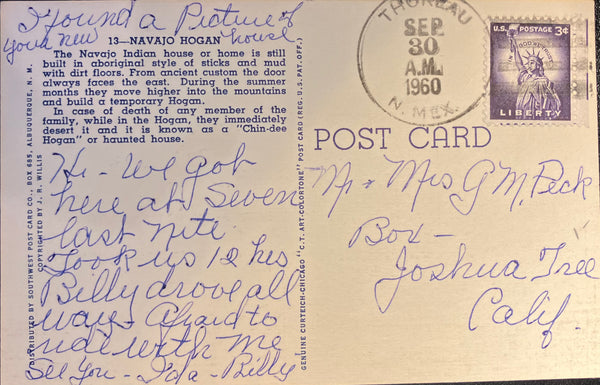 I found a Picture of
your new house
13—NAVAJO HOGAN
The Navajo Indian house or home is still
built in aboriginal style of sticks and mud
with dirt floors. From ancient custom the door
always faces the east. During the summer
months they move higher into the mountains
and build a temporary Hogan.
In case of death of any member of the
family, while in the Hogan, they immediately
desert it and it is known as a "Chin-dee
Hogan" or haunted house.
Hi - We got
here at Seven
last nite.
Took us 12 hrs
Billy drove all
way - Afraid to
ride with me
See You - Ida - Billy
DISTRIBUTED BY SOUTHWEST POST CARD CO., BOX 685, ALBUQUERQUE, N. M.
COPYRIGHTED BY J. R. WILLIS
GENUINE CURTEICH-CHICAGO "C.T. ART-COLORTONE" POST CARD (REG. U.S. PAT. OFF.)
THOREAU
SEP
30
A.M.
1960
N. MEX.
U.S. POSTAGE 3¢
IN GOD WE TRUST
LIBERTY
POST CARD
Mr + Mrs G M. Peck
Box -
Joshua Tree
Calif.